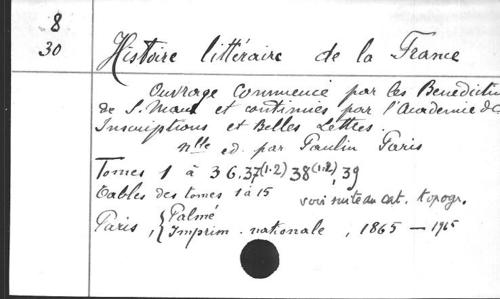 8
30
Histoire littéraire de la France
Ouvrage commencé par les Bénédictin
de S. Maur et continué par l'Academie d
Inscriptions et Belles Lettres.
nlle ed. par Paulin Paris
Tomes 1 à 36, 37(1.2) 38(1.2), 39
Tables des tomes 1 à 15
voir suite au cat. topogr.
Paris, { Palmé
Imprim. nationale, 1865 - 1965